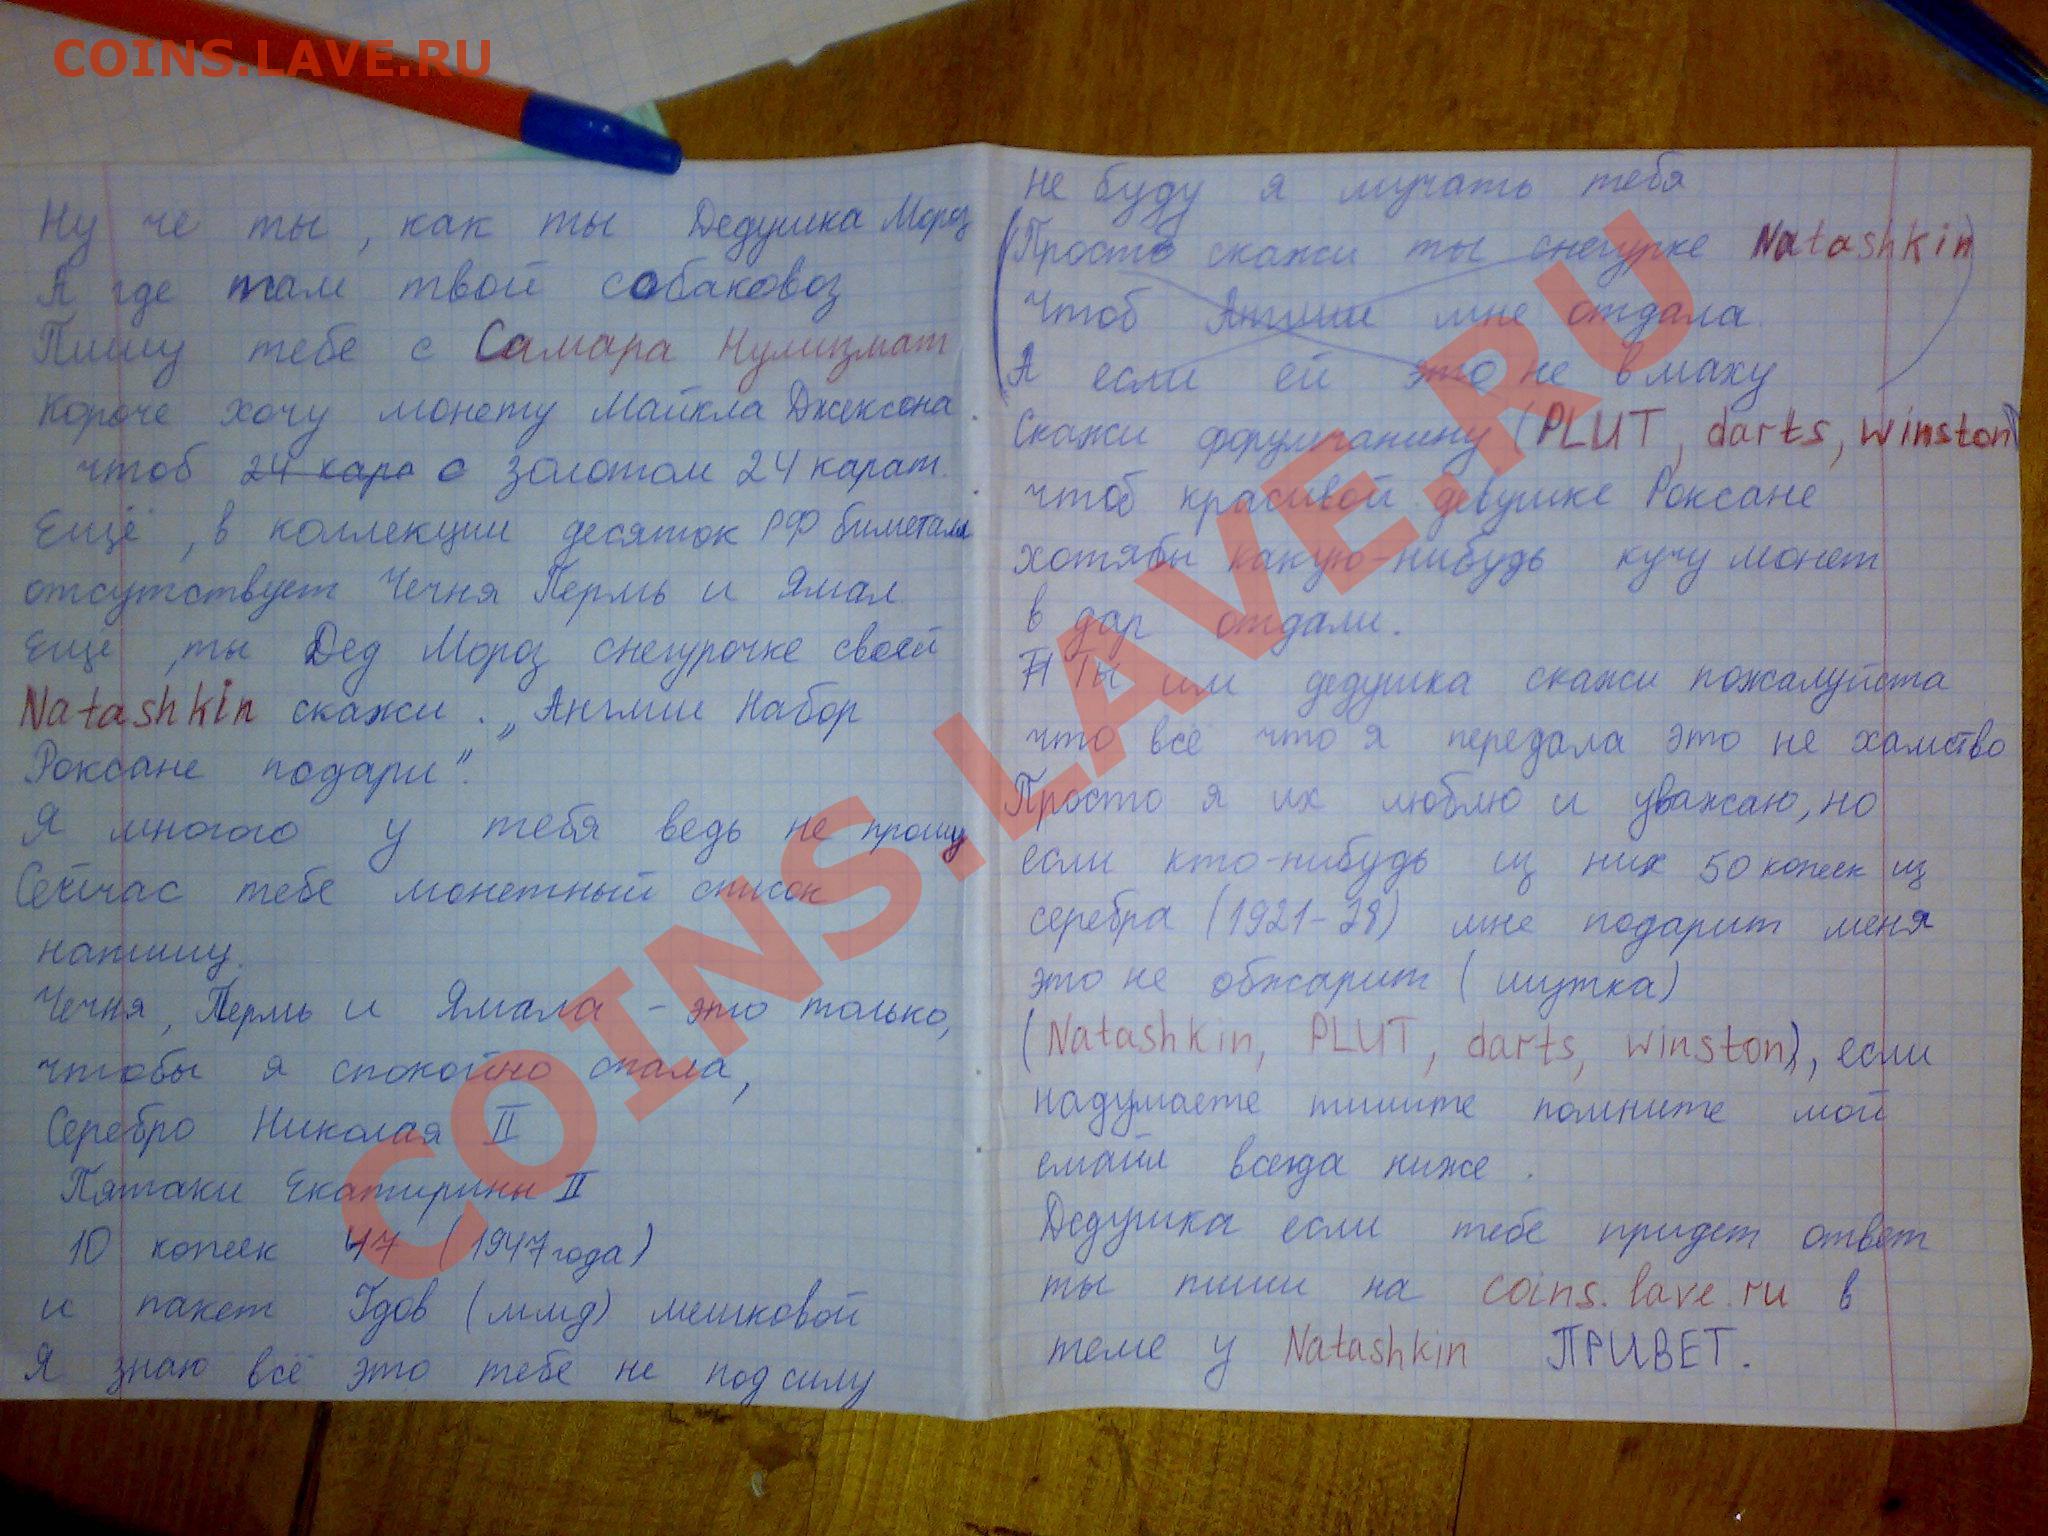 COINS.LAVE.RU
Ну че ты, как ты Дедушка Мороз
А где там твой собаковоз
Пишу тебе с Самара Нумизмат
Короче хочу монету Майкла Джексона
чтоб 24 кара с золотом 24 карат.
Ещё, в коллекции десяток РФ биметалл
отсутствует Чечня Пермь и Ямал.
Еще, ты Дед Мороз снегурочке своей
Natashkin скажи. „Англии Набор
Роксане подари".
Я многого у тебя ведь не прошу
Сейчас тебе монетный список
напишу.
Чечня, Пермь и Ямала - это только,
чтобы я спокойно спала,
Серебро Николая II
Пятаки Екатирины II
10 копеек 47 (1947 года)
и пакет Гдов (ммд) мешковой
Я знаю всё это тебе не под силу
не буду я мучать тебя
(Просто скажи ты снегурке Natashkin)
Чтоб Англии мне отдала
А если ей это не вмаху
Скажи форумчанину (PLUT, darts, winston)
чтоб красивой девушке Роксане
хотябы какую-нибудь кучу монет
в дар отдали.
Ты им дедушка скажи пожалуйста
что всё что я передала это не хамство
Просто я их люблю и уважаю, но
если кто-нибудь из них 50 копеек из
серебра (1921-28) мне подарит меня
это не обжарит (шутка)
(Natashkin, PLUT, darts, winston), если
надумаете пишите помните мой
емайл всегда ниже.
Дедушка если тебе придет ответ
ты пиши на coins.lave.ru в
теме у Natashkin ПРИВЕТ.
COINS.LAVE.RU